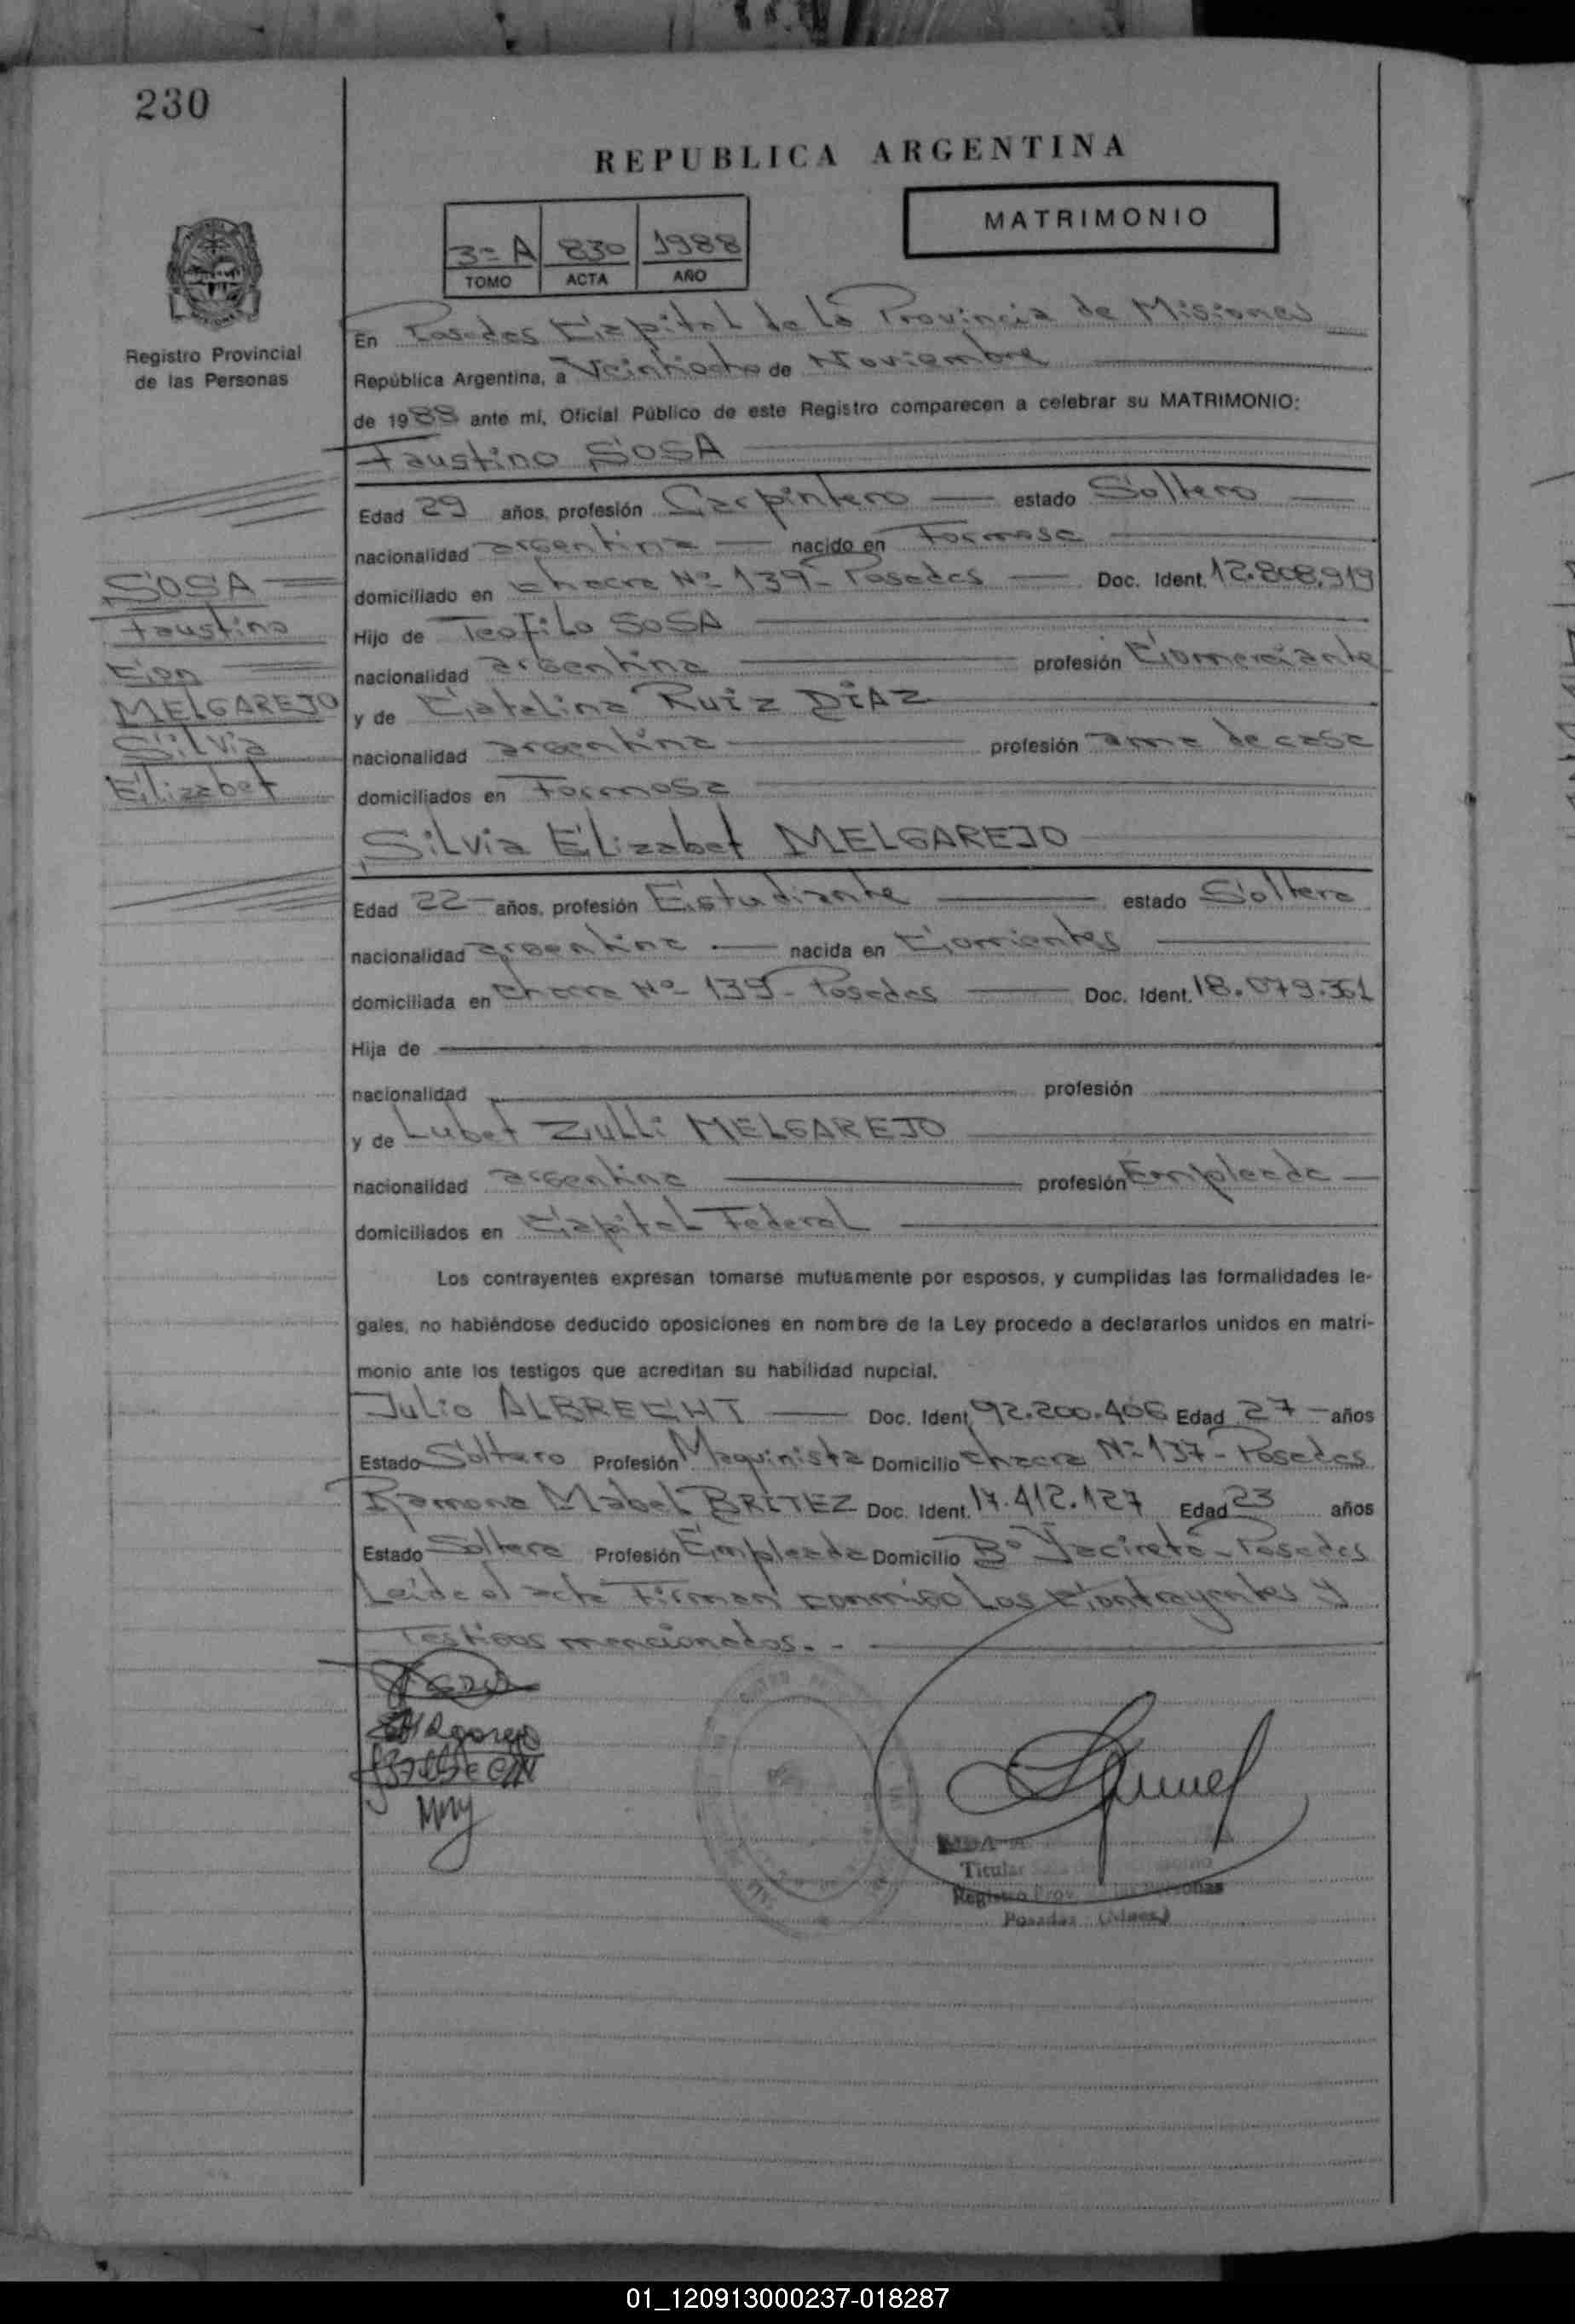 230
REPUBLICA ARGENTINA
MATRIMONIO
3º A 830 1988
TOMO ACTA AÑO
Registro Provincial
de las Personas
En Posadas Capital de la Provincia de Misiones
República Argentina, a Veintiocho de Noviembre
de 1988 ante mí, Oficial Público de este Registro comparecen a celebrar su MATRIMONIO:
Faustino SOSA
Edad 29 años, profesión Carpintero estado Soltero
nacionalidad argentina nacido en Formosa
domiciliado en chacra Nº 139 - Posadas Doc. Ident. 12.808.919
Hijo de Teofilo SOSA
nacionalidad argentina profesión Comerciante
y de Catalina RUIZ DIAZ
nacionalidad argentina profesión ama de casa
domiciliados en Formosa
SOSA
Faustino
Con
MELGAREJO
Silvia
Elizabet
Silvia Elizabet MELGAREJO
Edad 22 años, profesión Estudiante estado Soltera
nacionalidad argentina nacida en Corrientes
domiciliada en chacra Nº 139 - Posadas Doc. Ident. 18.079.361
Hija de
nacionalidad profesión
y de Lubet Zulli MELGAREJO
nacionalidad argentina profesión Empleada
domiciliados en Capital Federal
Los contrayentes expresan tomarse mutuamente por esposos, y cumplidas las formalidades le-
gales, no habiéndose deducido oposiciones en nombre de la Ley procedo a declararlos unidos en matri-
monio ante los testigos que acreditan su habilidad nupcial.
Julio ALBRECHT Doc. Ident. 92.200.406 Edad 27 años
Estado Soltero Profesión Maquinista Domicilio chacra Nº 137 - Posadas
Ramona Mabel BRITEZ Doc. Ident. 17.412.127 Edad 23 años
Estado Soltera Profesión Empleada Domicilio Bº Yacireta - Posadas
Leida el acta Firman conmigo Los Contrayentes y
Testigos mencionados. -
Titular
Registro Prov. Personas
Posadas (Mnes.)
01_120913000237-018287